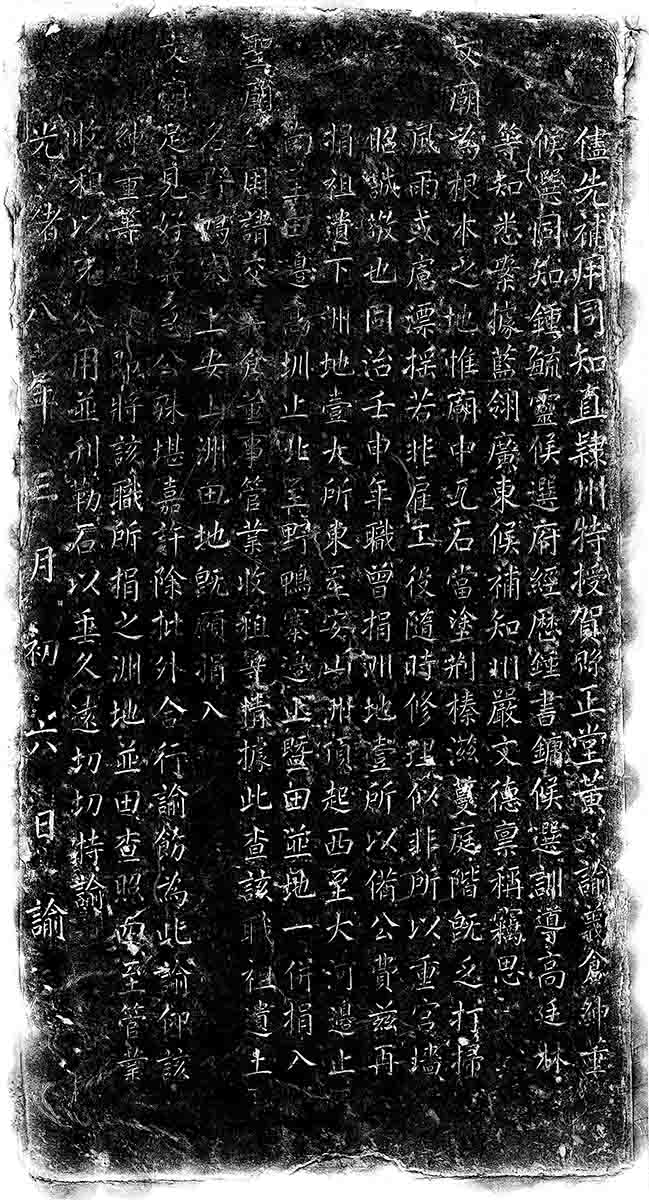 儘先補用同知直隸州特授賀縣正堂黃 諭義倉紳董
候選同知鍾毓靈候選府經歷鍾書鏞候選訓導高廷林
等知悉案據藍翎廣東候補知州嚴文德稟稱竊思
文廟為根本之地惟廟中瓦石當塗荆榛滋蔓庭階既乏打掃
風雨或慮漂搖若非雇工役隨時修理似非所以重宮墻
昭誠敬也同治壬申年職曾捐洲地壹所以備公費茲再
捐祖遺下洲地壹大所東至安山洲頂起西至大河邊止
南至田邊高圳止北至野鴨寨邊止暨田並地一併捐入
聖廟公用請交義倉董事管業收租等情據此查該職祖遺土
名野鴨寨上安山洲田地既願捐入
文廟足見好義急公殊堪嘉許除批外合行諭飭為此諭仰該
紳董等即將該職所捐之洲地並田查照四至管業
收租以充公用並刊勒石以垂久遠切切特諭
光緒八年三月初六日諭